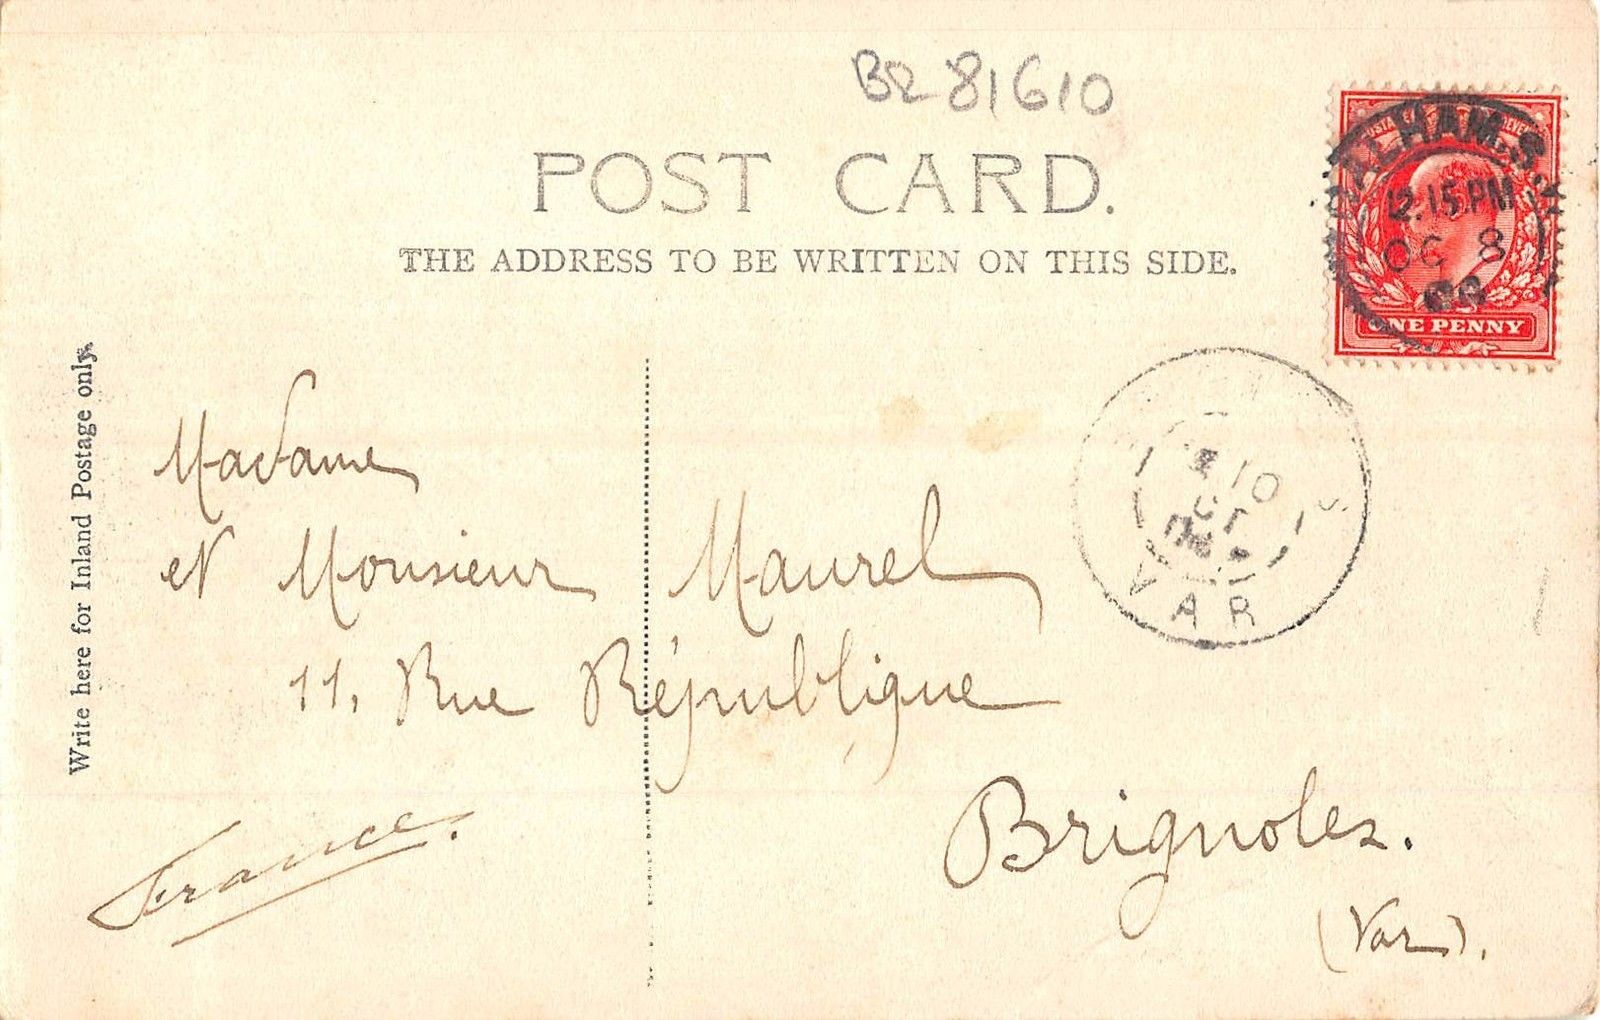 BR 81610
POST CARD.
THE ADDRESS TO BE WRITTEN ON THIS SIDE.
BALHAM. S.W
12.15.PM
OC 8
ONE PENNY
Write here for Inland Postage only.
Madame
et Monsieur Maurel
11, Rue République
Brignoles.
(Var).
France.
10
VAR